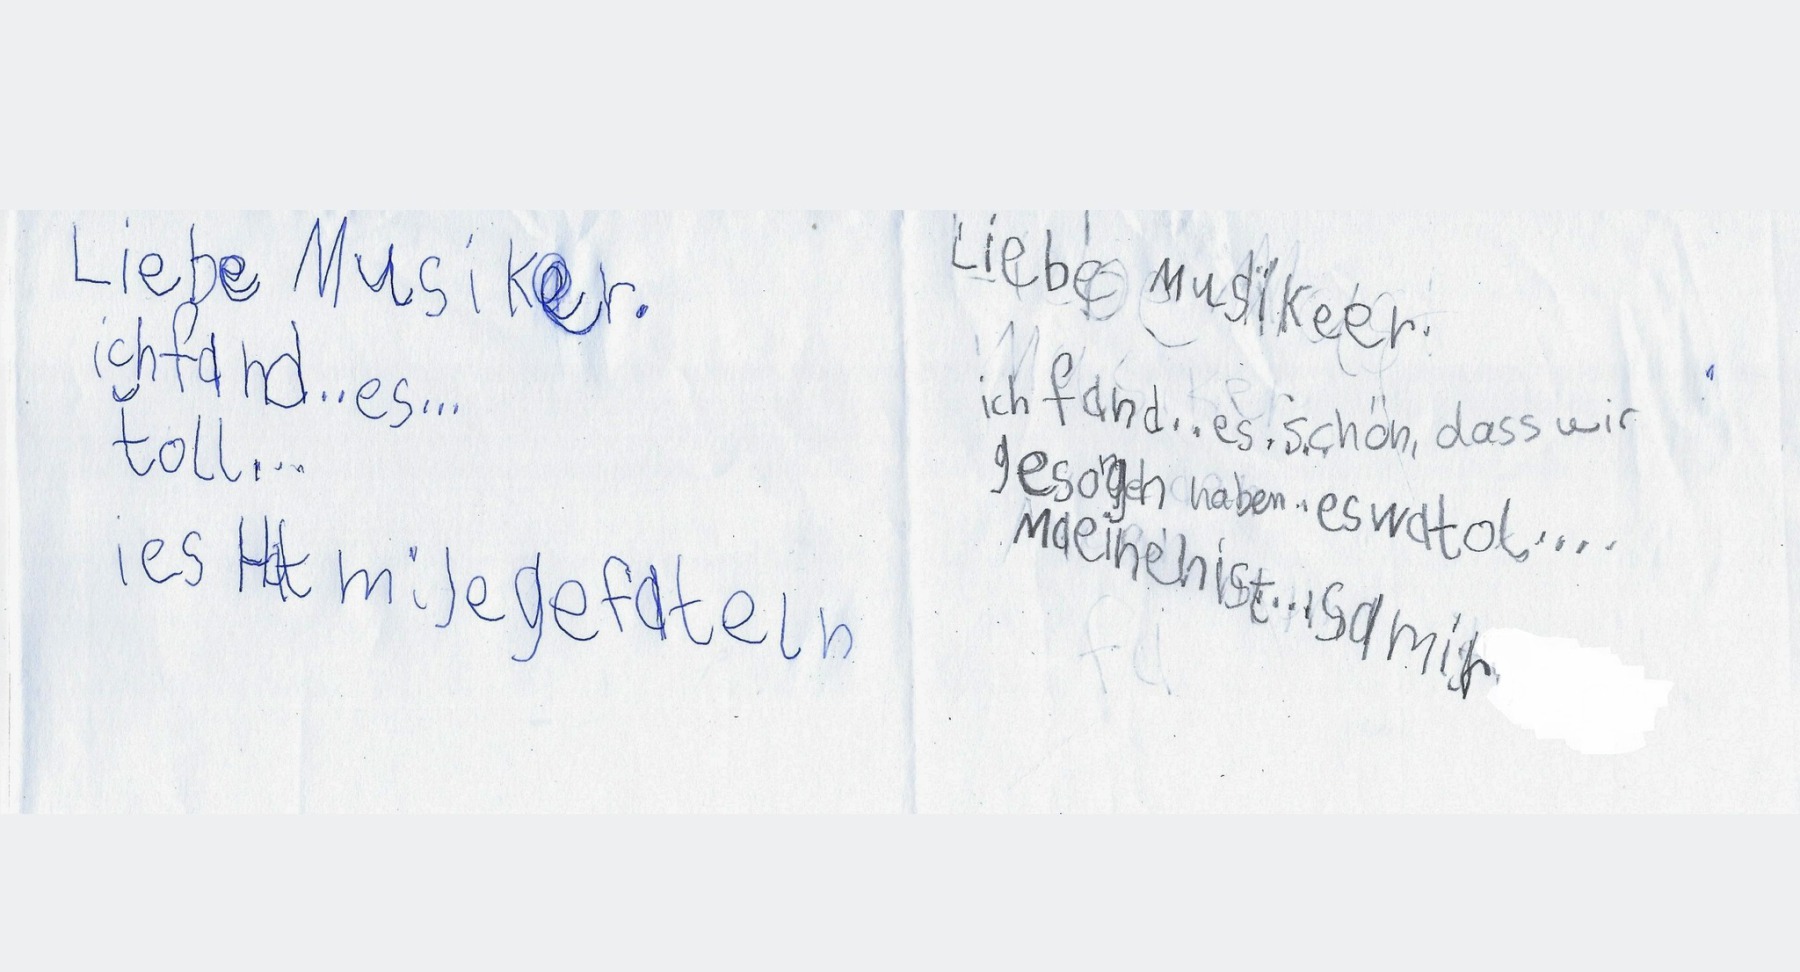 Liebe Musiker.
ich fand..es...
toll...
ies Hat mi gefateln
Liebe Musikeer.
ich fand..es.schön, dass wir
haben..eswatol....
Maeinenist...Samir.